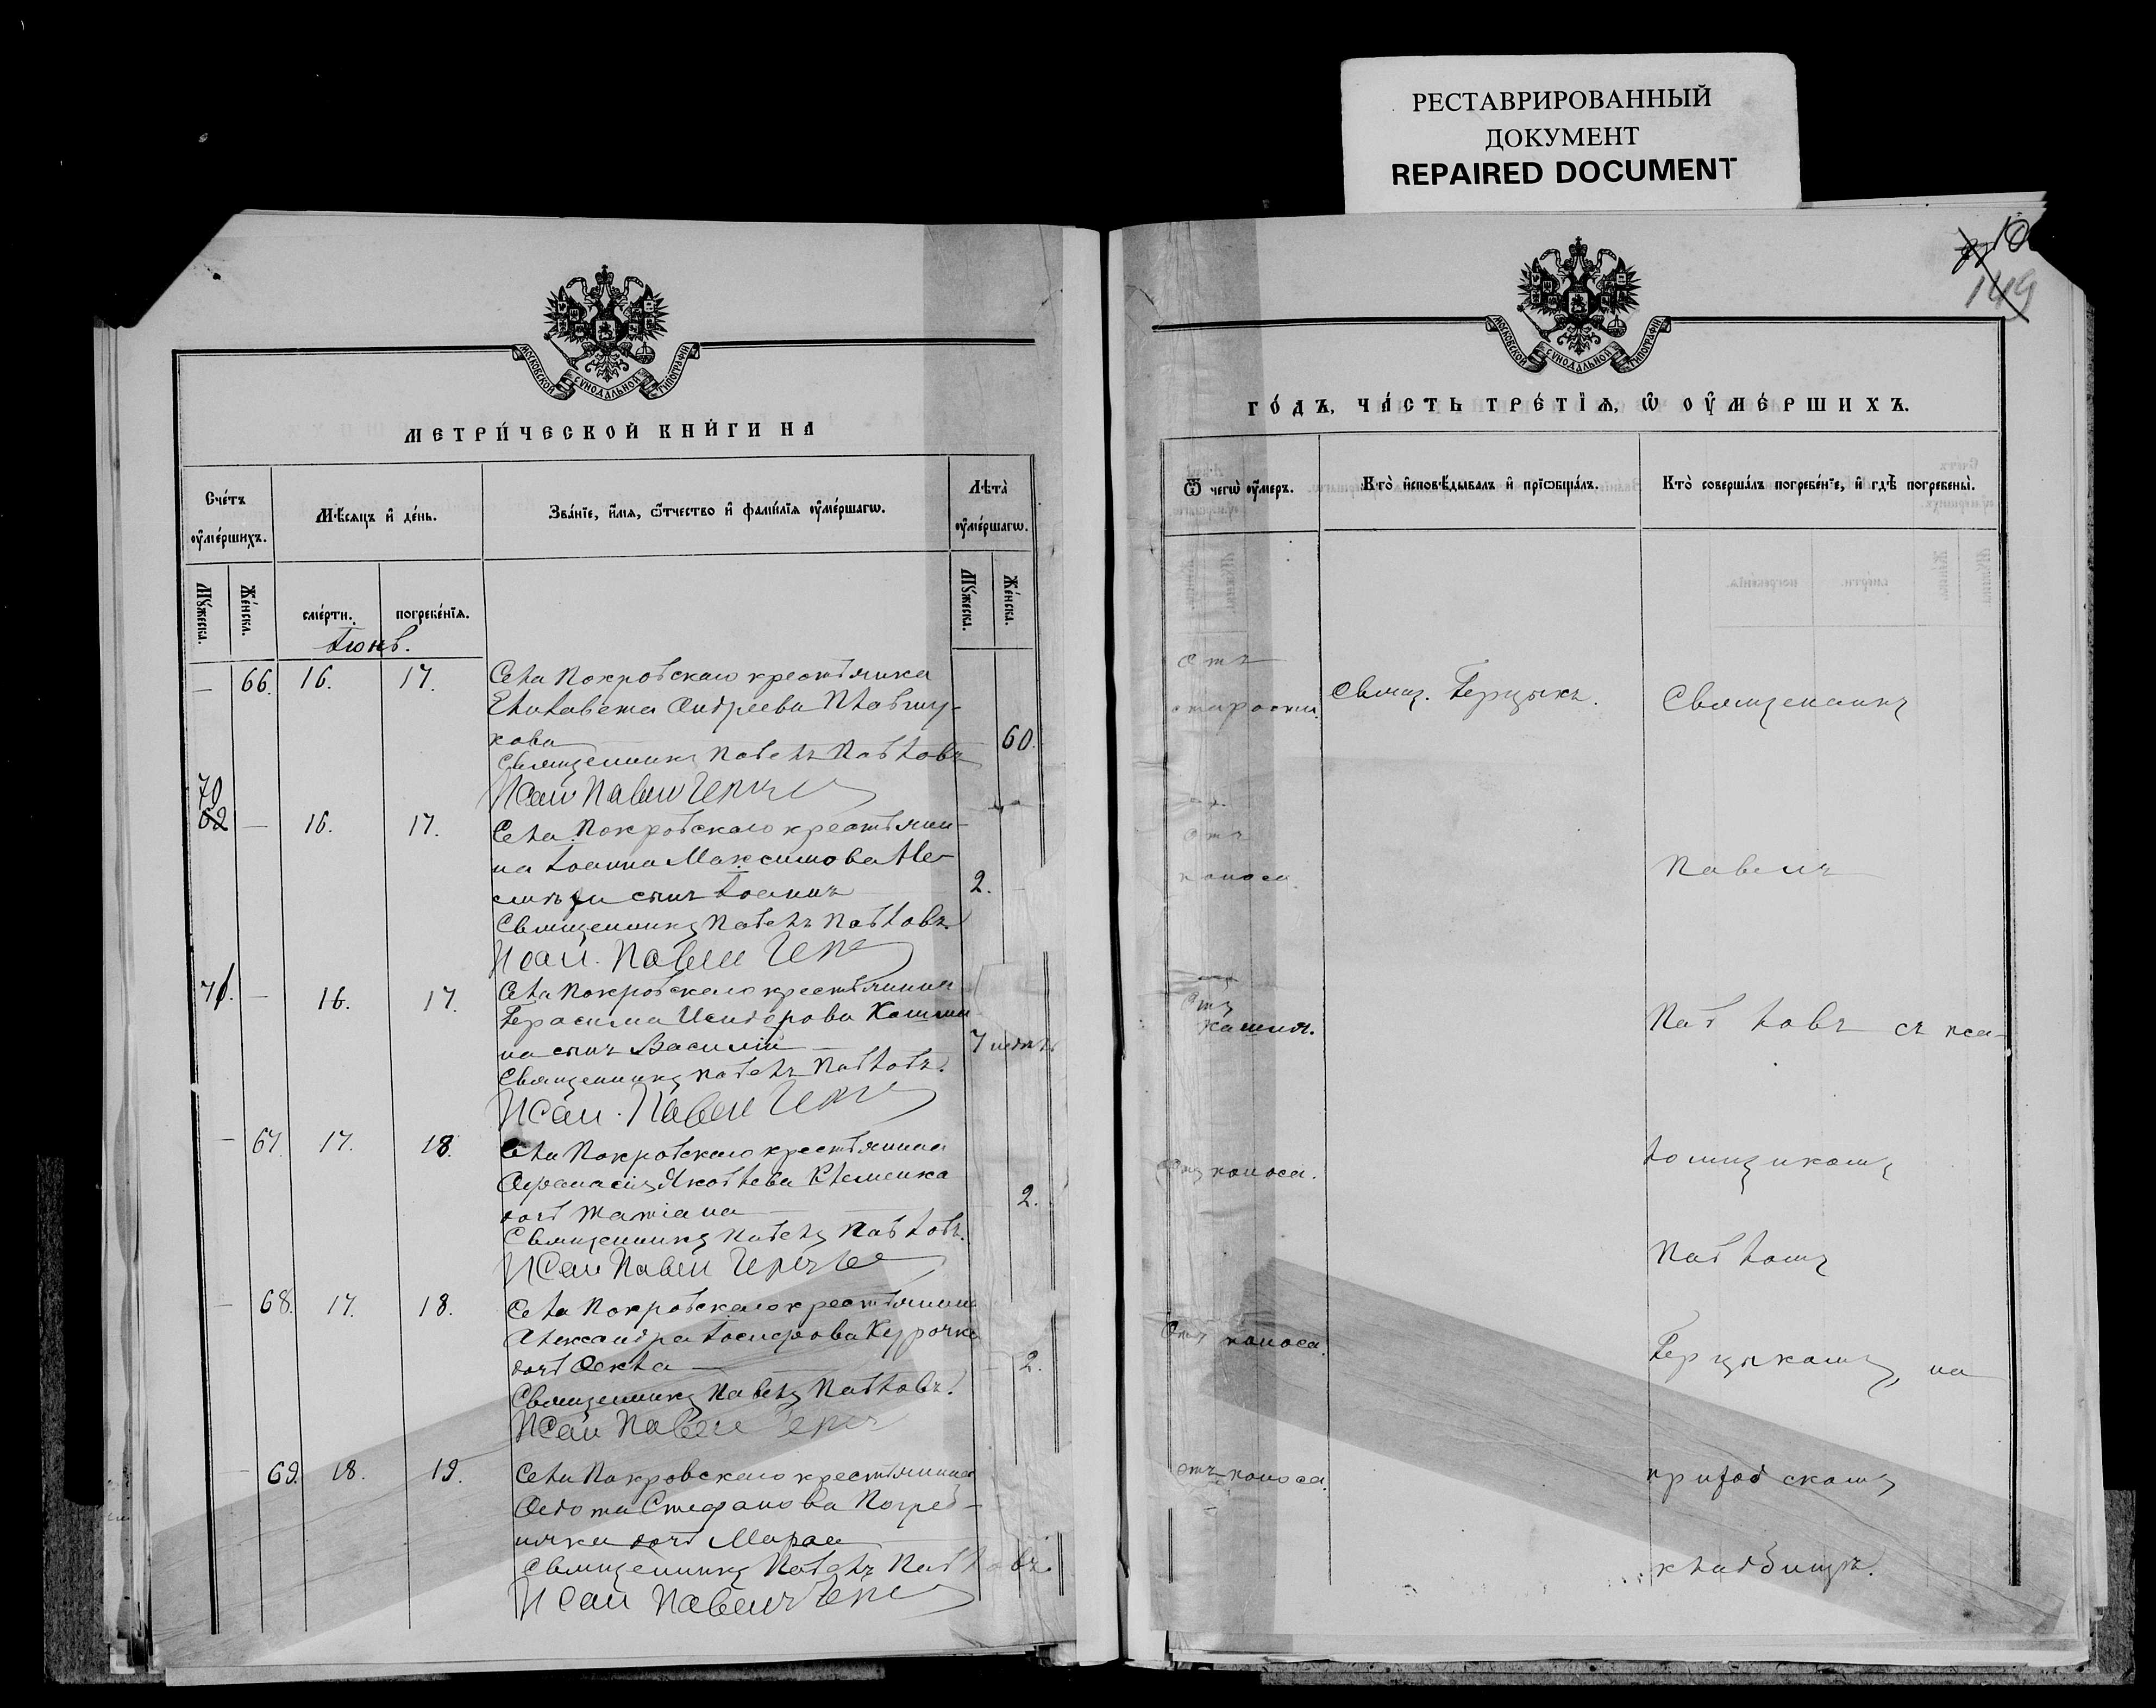 РЕСТАВРИРОВАННЫЙ
ДОКУМЕНТ
REPAIRED DOCUMENT
149
МОСКОВСКОЙ СУНОДАЛЬНОЙ ТИПОГРАФІИ
МЕТРИ́ЧЕСКОЙ КНИ́ГИ НА
Сче́тъ оу҆ме́ршихъ.
Мѣ́сяцъ и҆ де́нь.
Зва́нїе, и҆́мя, ѻ҆́тчество и҆ фами́лїя оу҆ме́ршагѡ.
Лѣта̀ оу҆ме́ршагѡ.
Мꙋ́жеска.
Же́нска.
сме́рти.
погребе́нїя.
Мꙋ́жеска.
Же́нска.
Іюнь.
— 66. 16. 17. Села Покровскаго крестьянка
Елисавета Андреева
кова 60.
Священникъ Павелъ Павловъ
Псал. Павел
70
62 — 16. 17. Села Покровскаго крестьяни-
на Іоанна Максимова
сынъ Іоаннъ 2.
Священникъ Павелъ Павловъ
Псал. Павел
71. — 16. 17. Села Покровскаго крестьянина
Герасима Исидорова
на сынъ Василій 7
Священникъ Павелъ Павловъ.
Псал. Павел
— 67. 17. 18. Села Покровскаго крестьянина
Афанасія Яковлева Клеменка
дочь Татіана 2.
Священникъ Павелъ Павловъ.
Псал. Павел
— 68. 17. 18. Села Покровскаго крестьянина
Александра Іосифова Курочка
дочь Ѳекла 2.
Священникъ Павелъ Павловъ.
Псал. Павел
— 69. 18. 19. Села Покровскаго крестьянина
Ѳедота Стефанова Погреб-
няка дочь Марѳа
Священникъ Павелъ Павловъ.
Псал. Павел
МОСКОВСКОЙ СУНОДАЛЬНОЙ ТИПОГРАФІИ
ГО́ДЪ, ЧА́СТЬ ТРЕ́ТІЯ, Ѡ҆ ОУ҆МЕ́РШИХЪ.
Ѿ чегѡ̀ оу҆́меръ.
Кто̀ и҆сповѣ́дывалъ и҆ прїѡбща́лъ.
Кто̀ соверша́лъ погребе́нїе, и҆ гдѣ̀ погребены̀.
отъ
старости. Свящ. Герцыкъ. Священникъ
отъ
поноса. Павелъ
Отъ
кашля. Павловъ съ пса-
Отъ поноса. ломщикомъ
Павломъ
Отъ поноса. Герцыкомъ, на
отъ поноса. приходскомъ
кладбищѣ.